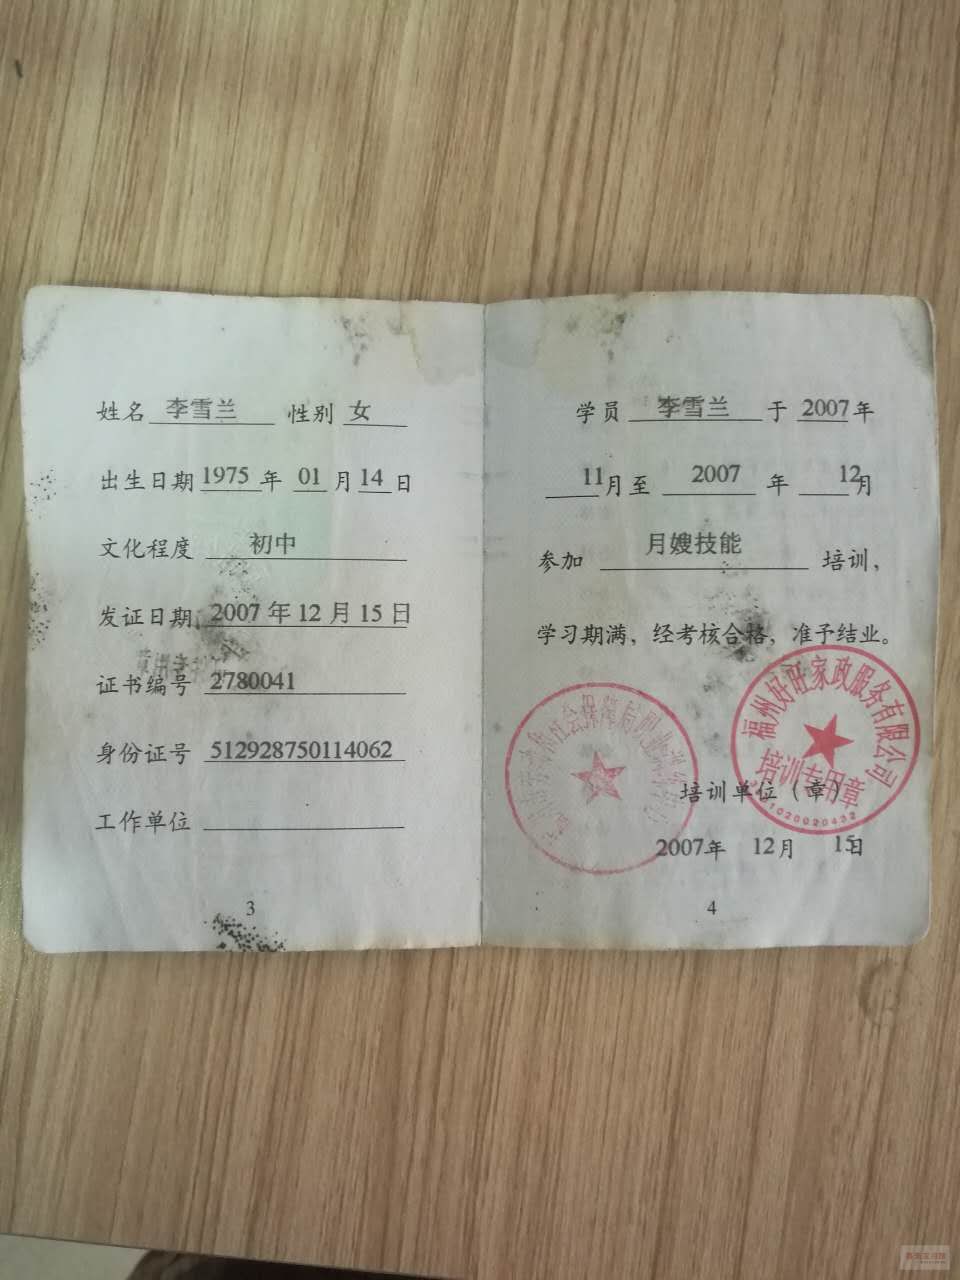 姓名 李雪兰 性别 女
出生日期 1975 年 01 月 14 日
文化程度 初中
发证日期 2007 年 12 月 15 日
证书编号 2780041
身份证号 512928750114062
工作单位
3
学员 李雪兰 于 2007 年
11 月至 2007 年 12 月
参加 月嫂技能 培训，
学习期满，经考核合格，准予结业。
福州好旺家政服务有限公司
培训专用章
培训单位（章）
2007年 12月 15日
4